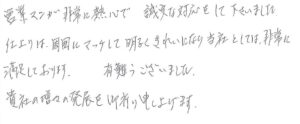 営業マンが非常に熱心で 誠実な対応をして下さいました
仕上りは、周囲にマッチして明るくきれいになり当社としては、非常に
満足しております。 有難うございました。
貴社の増々の発展を御祈り申し上げます。